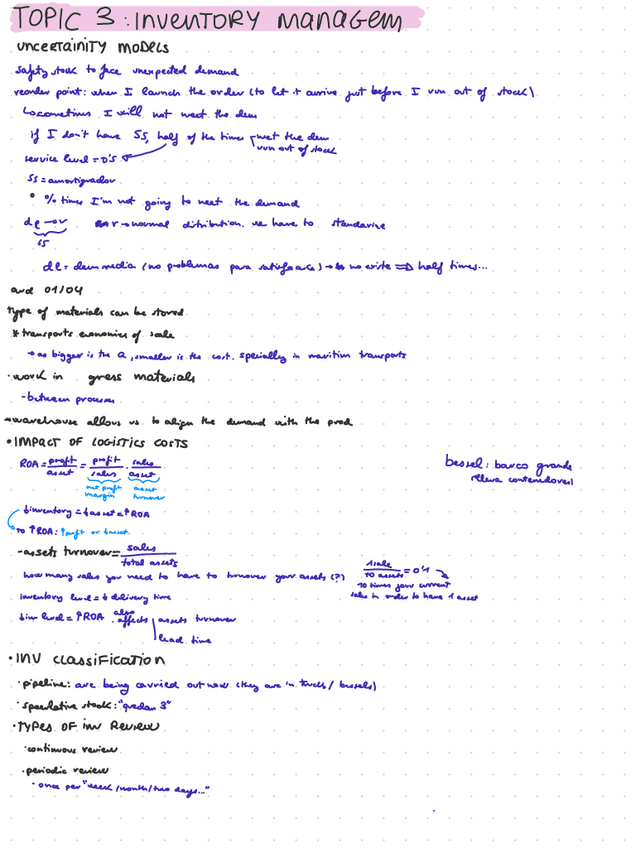 TOPIC 3: INVENTORY MANAGEM
UNCERTAINITY MODELS
safety stock to face unexpected demand
reorder point: when I launch the order (to let it arrive just before I run out of stock)
sometimes I will not meet the dem
if I don't have SS, half of the times met the dem
run out of stock
service level = 0'5
SS = amortiguador
% times I'm not going to meet the demand
normal distribution. we have to standarise
SS
dl = dem media (no problemas para satisfacerla) → no existe ⇒ half times...
avd 01/04
type of materials can be stored
* transports economies of scale
→ as bigger is the Q, smaller is the cost. specially in maritim transports
· work in gress materials
- between processes
warehouse allows us to align the demand with the prod
• IMPACT OF LOGISTICS COSTS
ROA = profit/asset = profit/sales · sales/asset
net profit margin
asset turnover
bessel: barco grande
lleva contenedores
↓ inventory = ↓ asset = ↑ ROA
to ↑ ROA: ↑ profit or ↓ asset
- assets turnover = sales/total assets
how many sales you need to have to turnover your assets (?)
1 sale/10 assets = 0'1
10 times your current
sales in order to have 1 asset
inventory level = ↓ delivery time
↓ inv level = ↑ ROA also affects assets turnover
lead time
• INV CLASSIFICATION
· pipeline: are being carried out now (they are in trucks / bessels)
· speculative stock: "quedan 3"
· TYPES OF INV REVIEW
· continuous review
· periodic review
· once per "week /month/two days..."